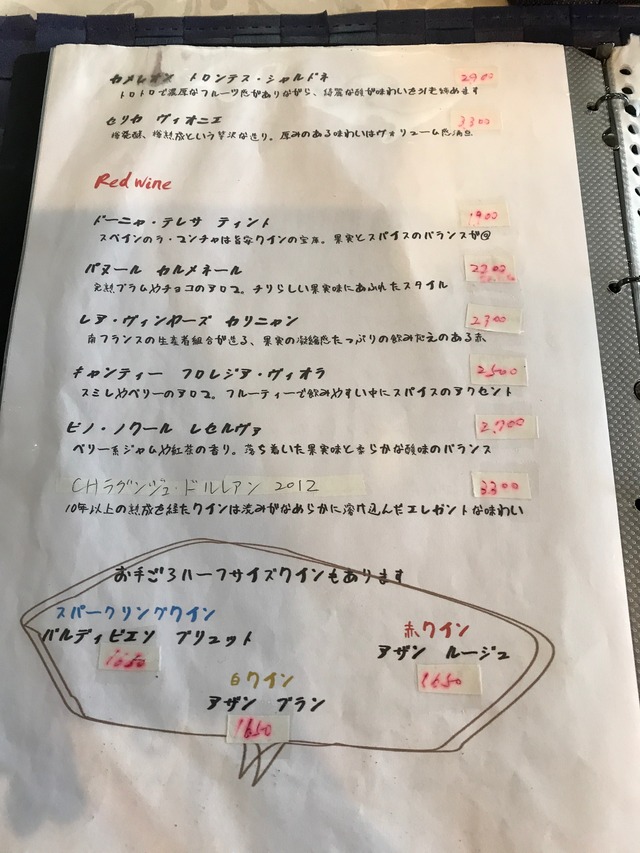 カメレオン トロンテス・シャルドネ 2900
トロトロで濃厚なフルーツ感がありながら、綺麗な酸が味わいを引き締めます
セリカ ヴィオニエ 3300
樽発酵、樽熟成という贅沢な造り。厚みのある味わいはヴォリューム感満点
Red wine
ドーニャ・テレサ ティント 1900
スペインのラ・マンチャは旨安ワインの宝庫。果実とスパイスのバランスが◎
パヌール カルメネール
完熟プラムやチョコのアロマ。チリらしい果実味にあふれたスタイル
レア・ヴィンヤーズ カリニャン 2300
南フランスの生産者組合が造る、果実の凝縮感たっぷりの飲みだえのある赤
キャンティー フロレジア・ヴィオラ 2500
スミレやベリーのアロマ。フルーティーで飲みやすい中にスパイスのアクセント
ピノ・ノワール レセルヴァ 2700
ベリー系ジャムや紅茶の香り。落ち着いた果実味と柔らかな酸味のバランス
CHラグランジュ・ドルレアン 2012 3300
10年以上の熟成を経たワインは渋みがなめらかに溶け込んだエレガントな味わい
お手ごろハーフサイズワインもあります
スパークリングワイン
バルディビエソ ブリュット
1650
赤ワイン
アザン ルージュ
1650
白ワイン
アザン ブラン
1650